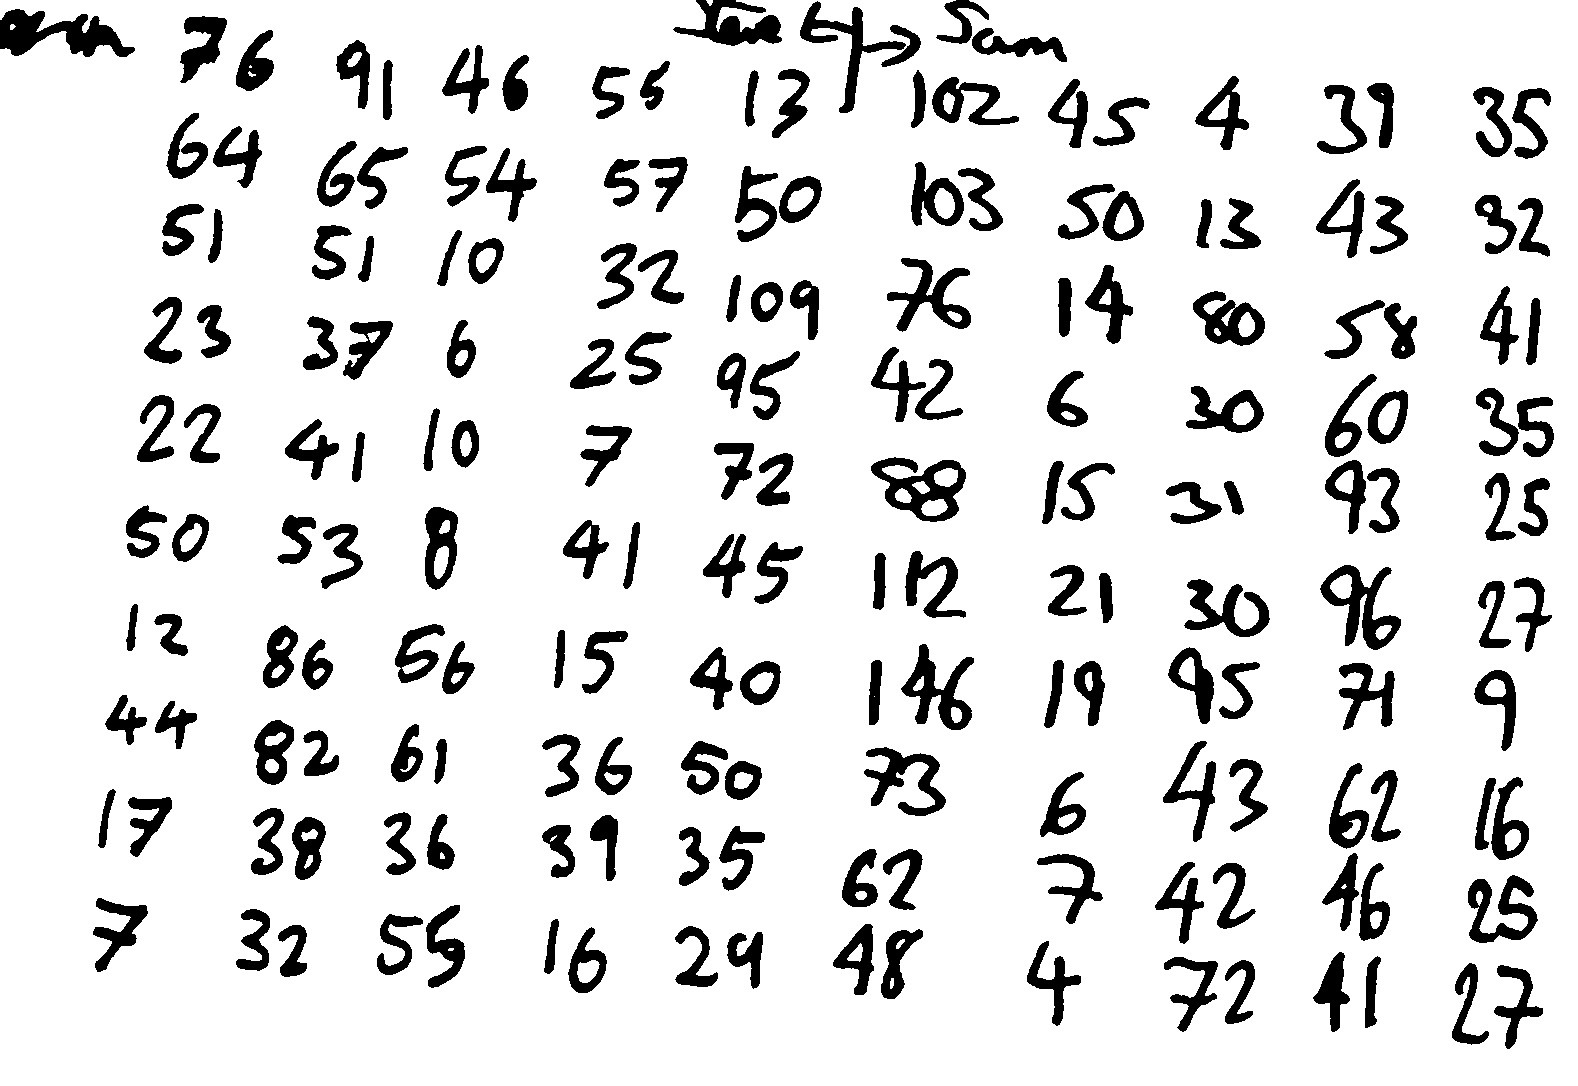 Steve ← | → Sam
76 91 46 55 13 102 45 4 39 35
64 65 54 57 50 103 50 13 43 32
51 51 10 32 109 76 14 80 58 41
23 37 6 25 95 42 6 30 60 35
22 41 10 7 72 88 15 31 93 25
50 53 8 41 45 112 21 30 96 27
12 86 56 15 40 146 19 95 71 9
44 82 61 36 50 73 6 43 62 16
17 38 36 39 35 62 7 42 46 25
7 32 55 16 29 48 4 72 41 27